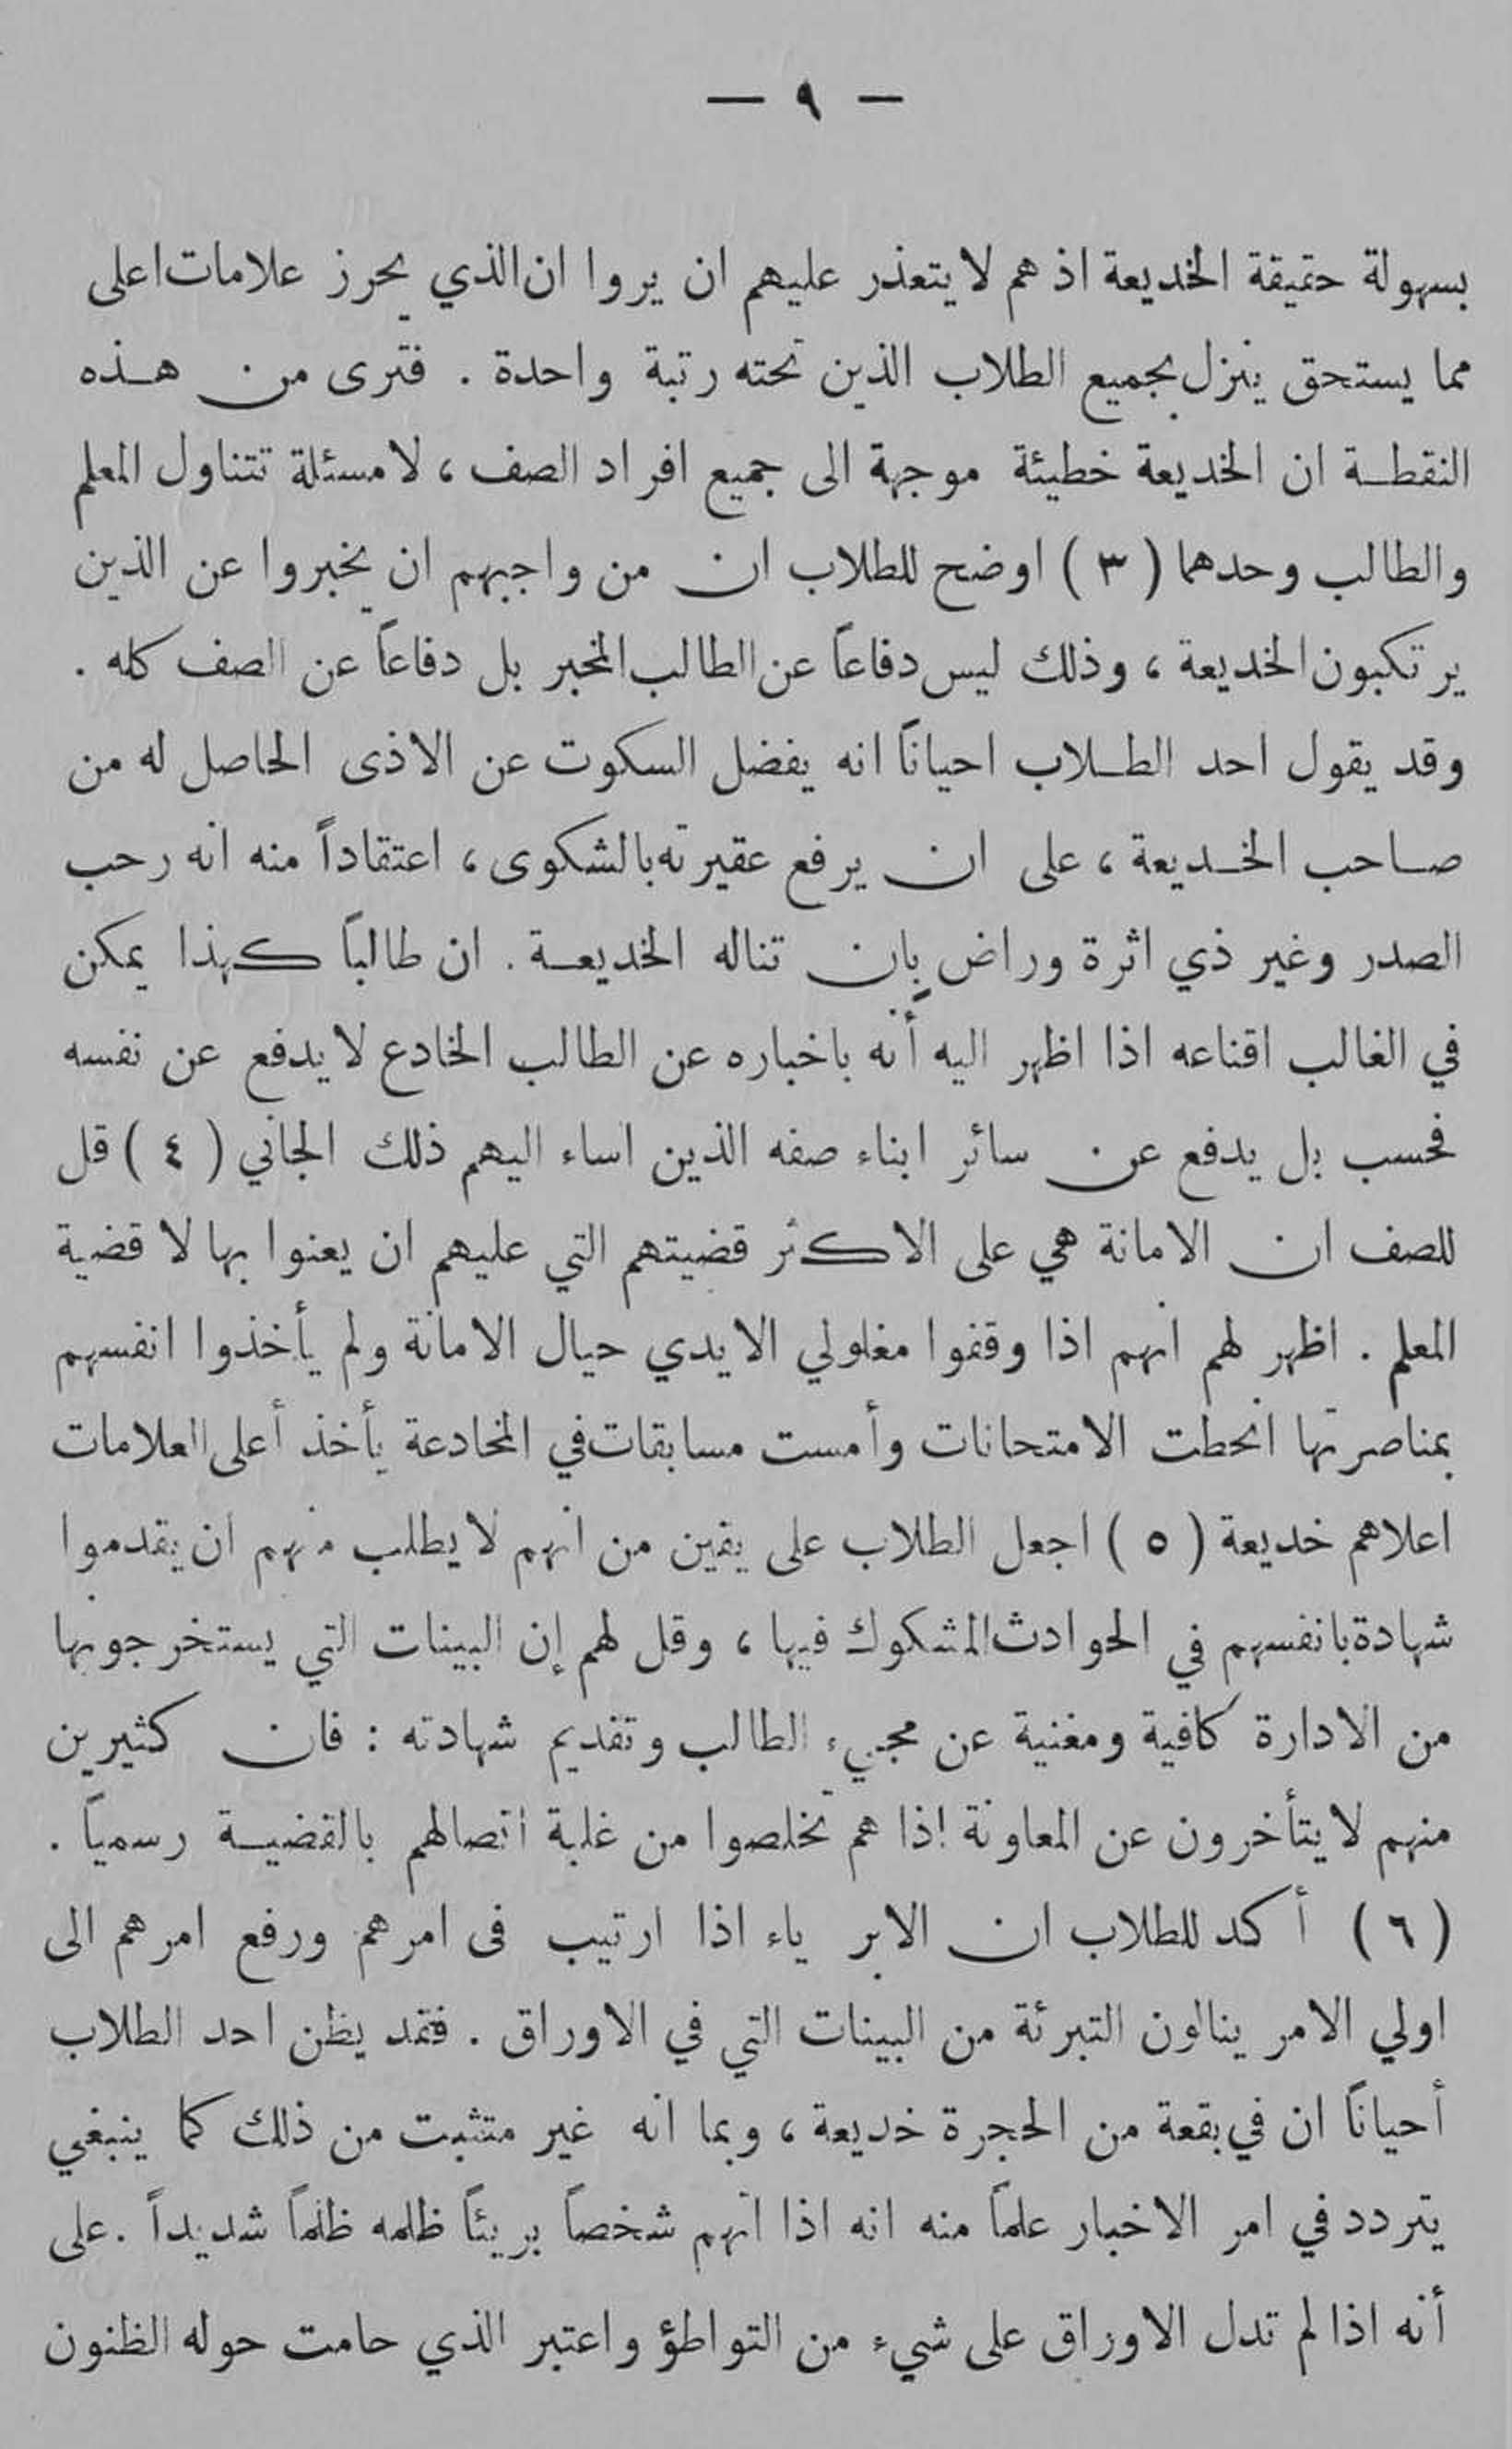 — ٩ —
بسهولة حقيقة الخديعة اذ هم لا يتعذر عليهم ان يروا ان الذي يحرز علامات اعلى
مما يستحق ينزل بجميع الطلاب الذين تحته رتبة واحدة . فترى من هذه
النقطة ان الخديعة خطيئة موجهة الى جميع افراد الصف ، لا مسئلة تتناول المعلم
والطالب وحدهما ( ٣ ) اوضح للطلاب ان من واجبهم ان يخبروا عن الذين
يرتكبون الخديعة ، وذلك ليس دفاعاً عن الطالب المخبر بل دفاعاً عن الصف كله .
وقد يقول احد الطلاب احياناً انه يفضل السكوت عن الاذى الحاصل له من
صاحب الخديعة ، على ان يرفع عقيرته بالشكوى ، اعتقاداً منه انه رحب
الصدر وغير ذي اثرة وراض بان تناله الخديعة . ان طالباً كهذا يمكن
في الغالب اقناعه اذا اظهر اليه أنه باخباره عن الطالب الخادع لا يدفع عن نفسه
فحسب بل يدفع عن سائر ابناء صفه الذين اساء اليهم ذلك الجاني ( ٤ ) قل
للصف ان الامانة هي على الاكثر قضيتهم التي عليهم ان يعنوا بها لا قضية
المعلم . اظهر لهم انهم اذا وقفوا مغلولي الايدي حيال الامانة ولم يأخذوا انفسهم
بمناصرتها انحطت الامتحانات وأمست مسابقات في المخادعة يأخذ أعلى العلامات
اعلاهم خديعة ( ٥ ) اجعل الطلاب على يقين من انهم لا يطلب منهم ان يقدموا
شهادة بانفسهم في الحوادث المشكوك فيها ، وقل لهم إن البينات التي يستخرجونها
من الادارة كافية ومغنية عن مجيء الطالب وتقديم شهادته : فان كثيرين
منهم لا يتأخرون عن المعاونة إذا هم تخلصوا من غلبة اتصالهم بالقضية رسمياً .
( ٦ ) أكد للطلاب ان الابرياء اذا ارتيب فى امرهم ورفع امرهم الى
اولي الامر ينالون التبرئة من البينات التي في الاوراق . فقد يظن احد الطلاب
أحياناً ان في بقعة من الحجرة خديعة ، وبما انه غير متثبت من ذلك كما ينبغي
يتردد في امر الاخبار علماً منه انه اذا اتهم شخصاً بريئاً ظلمه ظلماً شديداً . على
أنه اذا لم تدل الاوراق على شيء من التواطؤ واعتبر الذي حامت حوله الظنون